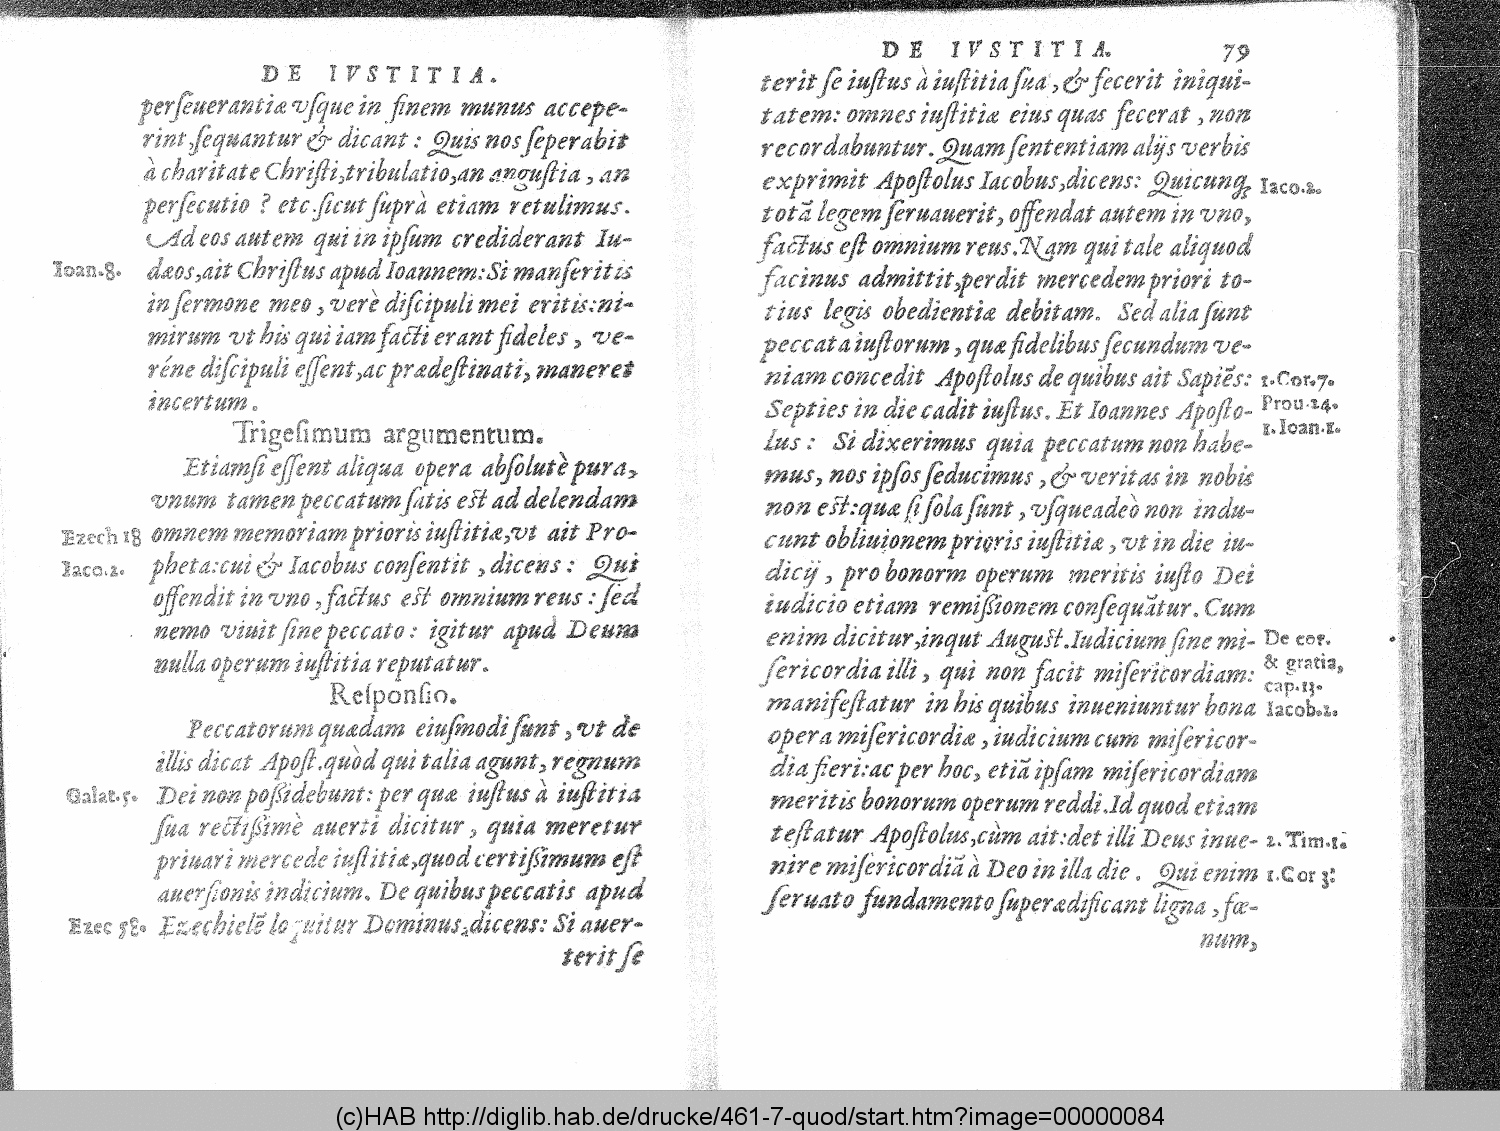 DE IVSTITIA.
perſeuerantiæ vſque in finem munus accepe-
rint, ſequantur & dicant: Quis nos ſeperabit
à charitate Chriſti, tribulatio, an anguſtia, an
perſecutio? etc. ſicut ſuprà etiam retulimus.
Ad eos autem qui in ipſum crediderant Iu-
Ioan.8. dæos, ait Chriſtus apud Ioannem: Si manſeritis
in ſermone meo, verè diſcipuli mei eritis: ni-
mirum vt his qui iam facti erant fideles, ve-
réne diſcipuli eſſent, ac prædeſtinati, maneret
incertum.
Trigeſimum argumentum.
Etiamſi eſſent aliqua opera abſolutè pura,
vnum tamen peccatum ſatis est ad delendam
Ezech 18 omnem memoriam prioris iuſtitiæ, vt ait Pro-
Iaco.2. pheta: cui & Iacobus conſentit, dicens: Qui
offendit in vno, factus est omnium reus: ſed
nemo viuit ſine peccato: igitur apud Deum
nulla operum iuſtitia reputatur.
Reſponſio.
Peccatorum quædam eiuſmodi ſunt, vt de
illis dicat Apoſt. quòd qui talia agunt, regnum
Galat.5. Dei non poßidebunt: per quæ iuſtus à iuſtitia
ſua rectißimè auerti dicitur, quia meretur
priuari mercede iuſtitiæ, quod certißimum eſt
auerſionis indicium. De quibus peccatis apud
Ezec 58. Ezechielē loquitur Dominus, dicens: Si auer-
terit ſe
DE IVSTITIA. 79
terit ſe iuſtus à iuſtitia ſua, & fecerit iniqui-
tatem: omnes iuſtitiæ eius quas fecerat, non
recordabuntur. Quam ſententiam alijs verbis
exprimit Apoſtolus Iacobus, dicens: Quicunq; Iaco.2.
totā legem ſeruauerit, offendat autem in vno,
factus eſt omnium reus. Nam qui tale aliquod
facinus admittit, perdit mercedem priori to-
tius legis obedientiæ debitam. Sed alia ſunt
peccata iuſtorum, quæ fidelibus ſecundum ve-
niam concedit Apoſtolus de quibus ait Sapiēs: 1.Cor.7.
Septies in die cadit iuſtus. Et Ioannes Apoſto- Prou.24.
lus: Si dixerimus quia peccatum non habe- 1.Ioan.1.
mus, nos ipſos ſeducimus, & veritas in nobis
non est: quæ ſi ſola ſunt, vſqueadeò non indu-
cunt obliuionem prioris iuſtitiæ, vt in die iu-
dicij, pro bonorm operum meritis iuſto Dei
iudicio etiam remißionem conſequātur. Cum
enim dicitur, inqut August. Iudicium ſine mi- De cor.
ſericordia illi, qui non facit miſericordiam: & gratia,
cap.13.
manifeſtatur in his quibus inueniuntur bona Iacob.2.
opera miſericordiæ, iudicium cum miſericor-
dia fieri: ac per hoc, etiā ipſam miſericordiam
meritis bonorum operum reddi. Id quod etiam
teſtatur Apoſtolus, cùm ait: det illi Deus inue- 2.Tim.1.
nire miſericordiā à Deo in illa die. Qui enim 1.Cor 3.
ſeruato fundamento ſuperædificant ligna, fœ-
num,
(c)HAB http://diglib.hab.de/drucke/461-7-quod/start.htm?image=00000084